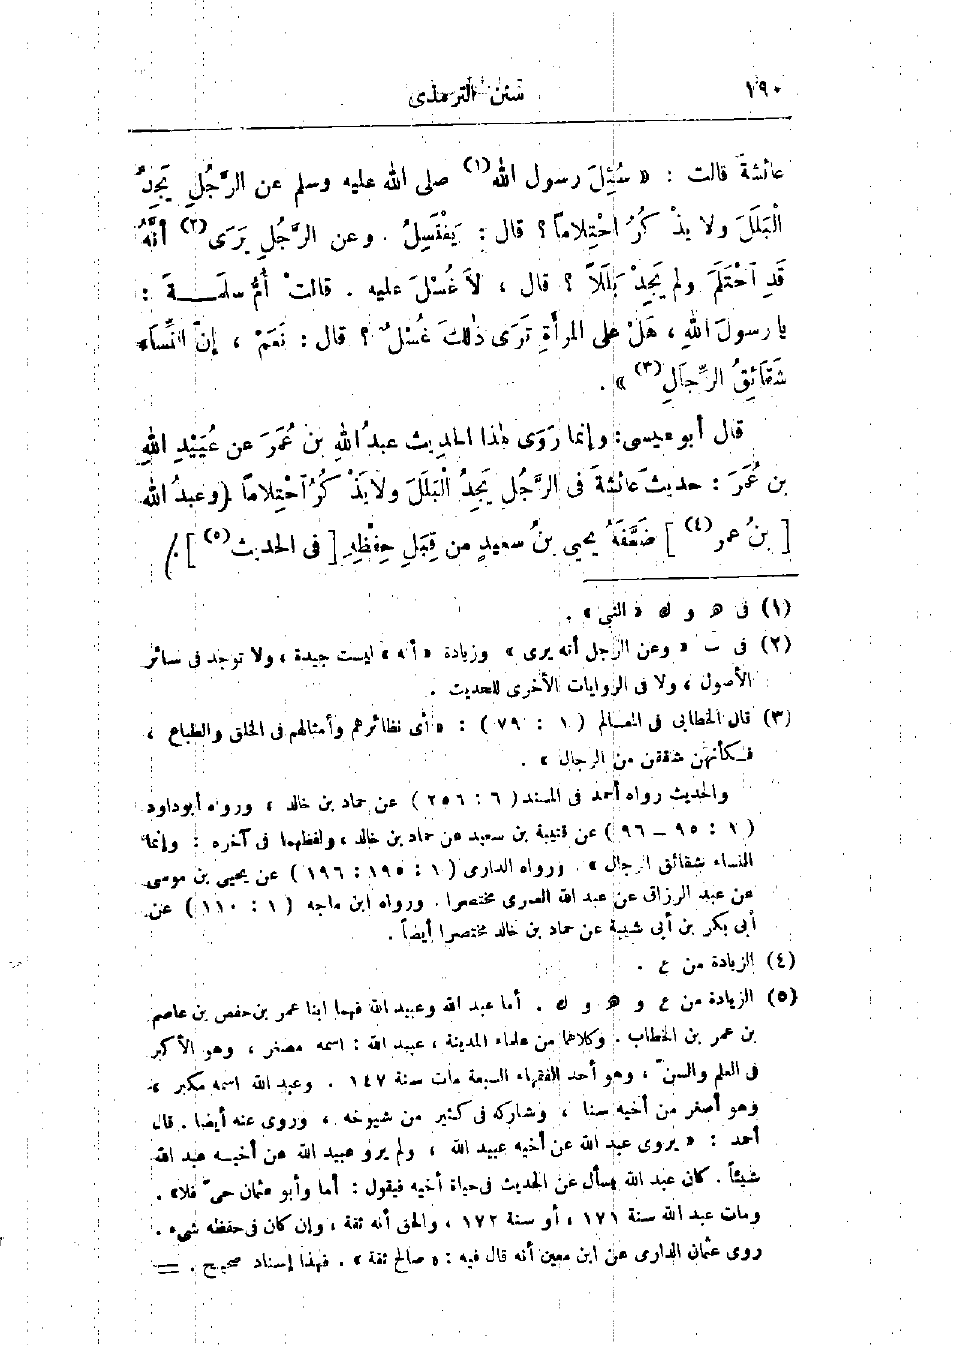 ١٩٠
سنن الترمذى
عائشةَ قالت : « سُئِلَ رسول الله(١) صلى الله عليه وسلم عن الرَّجُلِ يَجِدُ
الْبَلَلَ ولا يذْ كُرُ احْتِلاماً ؟ قال : يَغْتَسِلُ . وعن الرَّجُلِ يَرَى(٢) أنَّهُ
قَدِ آحْتَلَمَ ولم يَجِدْ بَلَلاً ؟ قال ، لاَ غُسْلَ عليه . قالتْ أُمُّ سلَمَةَ :
يا رسولَ اللهِ ، هَلْ على المرأَةِ تَرَى ذٰلكَ غُسْلٌ ؟ قال : نَعَمْ ، إنّ النِّساءَ
شَقَائِقُ الرِّجالِ(٣) » .
قال أبو عيسى : وإنما رَوَى هٰذا الحديث عبدُ اللهِ بن عُمَرَ عن عُبَيْدِ اللهِ
بن عُمَرَ : حديثَ عائشةَ فى الرَّجُلِ يَجِدُ الْبَلَلَ ولا يَذْ كُرُ آحْتِلاماً . (وعبدُ الله
[ بنُ عمر(٤) ] ضَعَّفَهُ يحيى بنُ سعيدٍ من قِبَلِ حِفْظِهِ [ فى الحديث(٥) ] . )
(١) فى هـ و ك « النبى » .
(٢) فى ت « وعن الرجل أنه يرى » وزيادة « أنه » ليست جيدة ، ولا توجد فى سائر
الأصول ، ولا فى الروايات الأخرى للحديث .
(٣) قال الخطابى فى المعالم ( ١ : ٧٩ ) : « أى نظائرهم وأمثالهم فى الخلق والطباع ،
فكأنهن شققن من الرجال » .
والحديث رواه أحمد فى المسند ( ٦ : ٢٥٦ ) عن حماد بن خالد ، ورواه أبو داود
( ١ : ٩٥ - ٩٦ ) عن قتيبة بن سعيد عن حماد بن خالد ، ولفظهما فى آخره : « إنما
النساء شقائق الرجال » . ورواه الدارمى ( ١ : ١٩٥ : ١٩٦ ) عن يحيى بن موسى
عن عبد الرزاق عن عبد الله العمرى مختصرا . ورواه ابن ماجه ( ١ : ١١٠ ) عن
أبى بكر بن أبى شيبة عن حماد بن خالد مختصرا أيضاً .
(٤) الزيادة من ع .
(٥) الزيادة من ع و هـ و ك . أما عبد الله وعبيد الله فهما ابنا عمر بن حفص بن عاصم
بن عمر بن الخطاب . وكلاهما من علماء المدينة ، عبيد الله : اسمه مصغر ، وهو الأكبر
فى العلم والسنّ ، وهو أحد الفقهاء السبعة مات سنة ١٤٧ . وعبد الله اسمه مكبر ،
وهو أصغر من أخيه سنا ، وشاركه فى كثير من شيوخه ، وروى عنه أيضا . قال
أحمد : « يروى عبد الله عن أخيه عبيد الله ، ولم يرو عبيد الله عن أخيه عبد الله
شيئاً . كان عبد الله يسأل عن الحديث فى حياة أخيه فيقول : أما وأبو عثمان حىّ فلا » .
ومات عبد الله سنة ١٧١ ، أو سنة ١٧٢ ، والحق أنه ثقة ، وإن كان فى حفظه شىء .
روى عثمان الدارمى عن ابن معين أنه قال فيه : « صالح ثقة » . فهذا إسناد صحيح . =